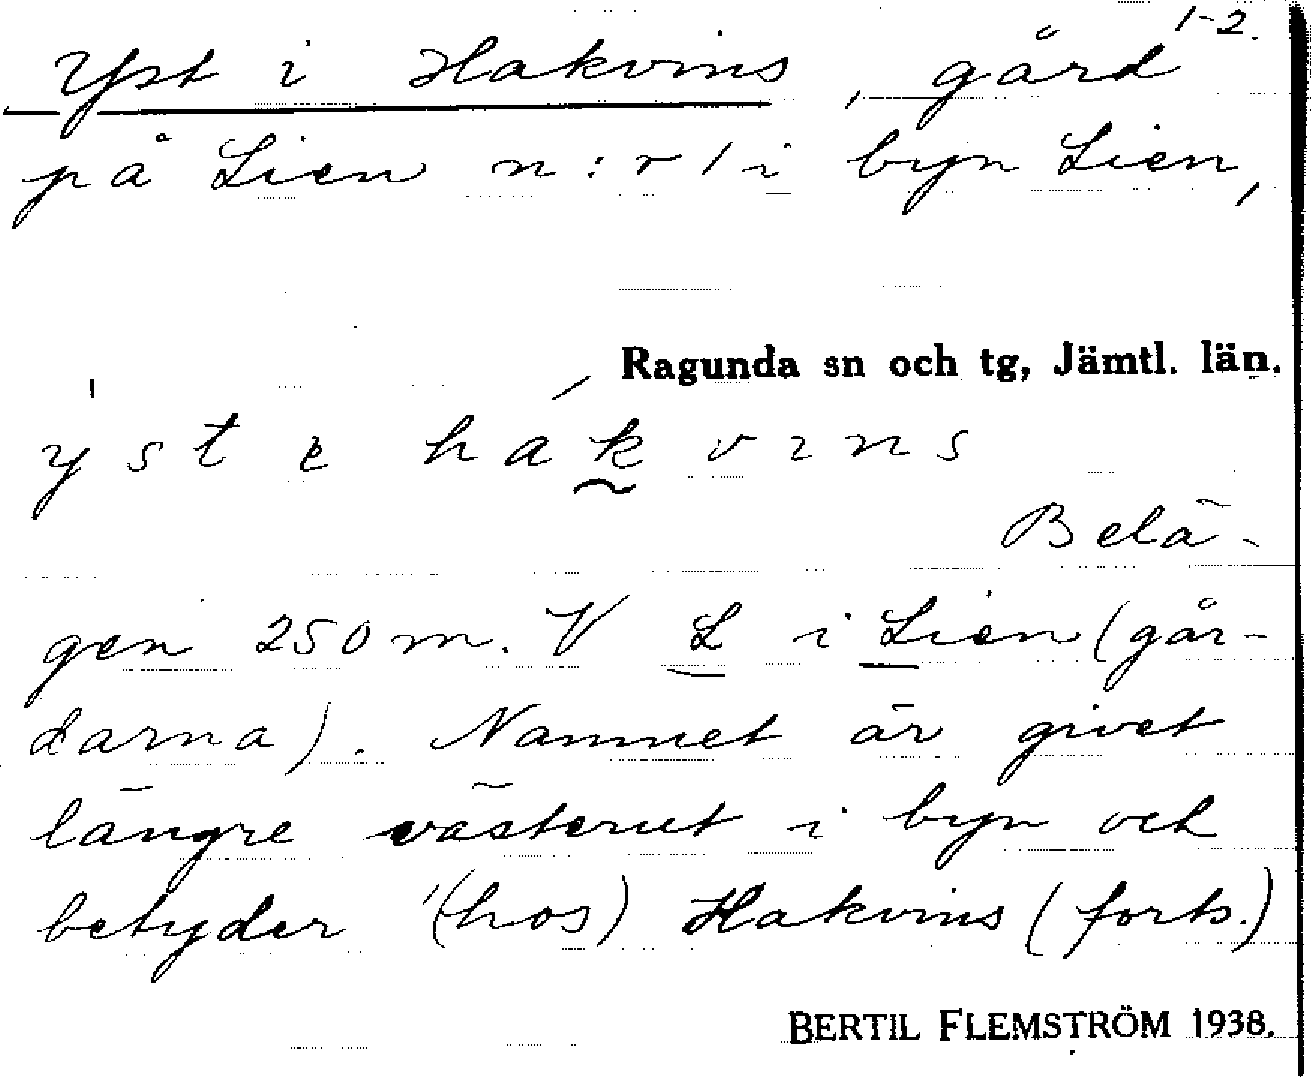 1-2.
Yst i Hakvins, gård
på Lien n:r 1 i byn Lien,
Ragunda sn och tg, Jämtl. län.
yst e hákvıns
Belä-
gen 250 m. V L i Lien (går-
darna). Namnet är givet
längre västerut i byn och
betyder '(hos) Hakvins (forts.)
BERTIL FLEMSTRÖM 1938.